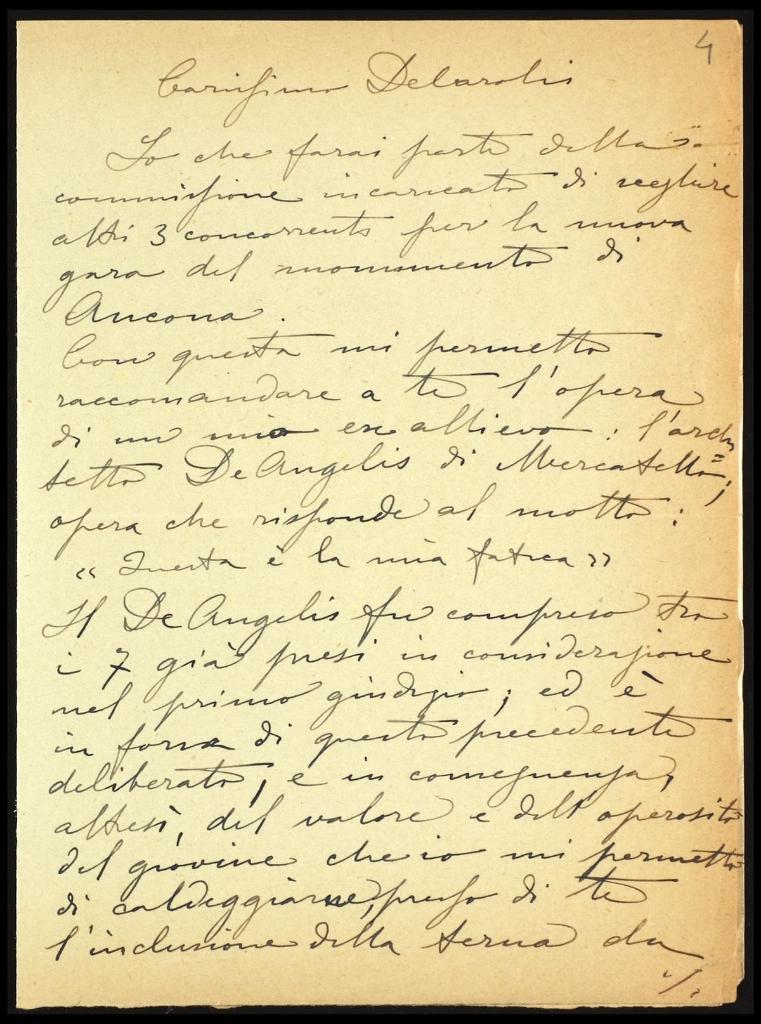 4
Carissimo Decarolis
So che farai parte della
commissione incaricata di scegliere
altri 3 concorrenti per la nuova
gara del monumento di
Ancona.
Con questa mi permetto
raccomandare a te l'opera
di un mio ex allievo: l'archi=
tetto De Angelis di Mercatello;
opera che risponde al motto:
« Questa è la mia fatica »
Il De Angelis fu compreso tra
i 7 già presi in considerazione
nel primo giudizio; ed è
in forza di questo precedente
deliberato, e in conseguenza,
altresì, del valore e dell'operosità
del giovine che io mi permetto
di caldeggiarne, presso di te
l'inclusione della terna da